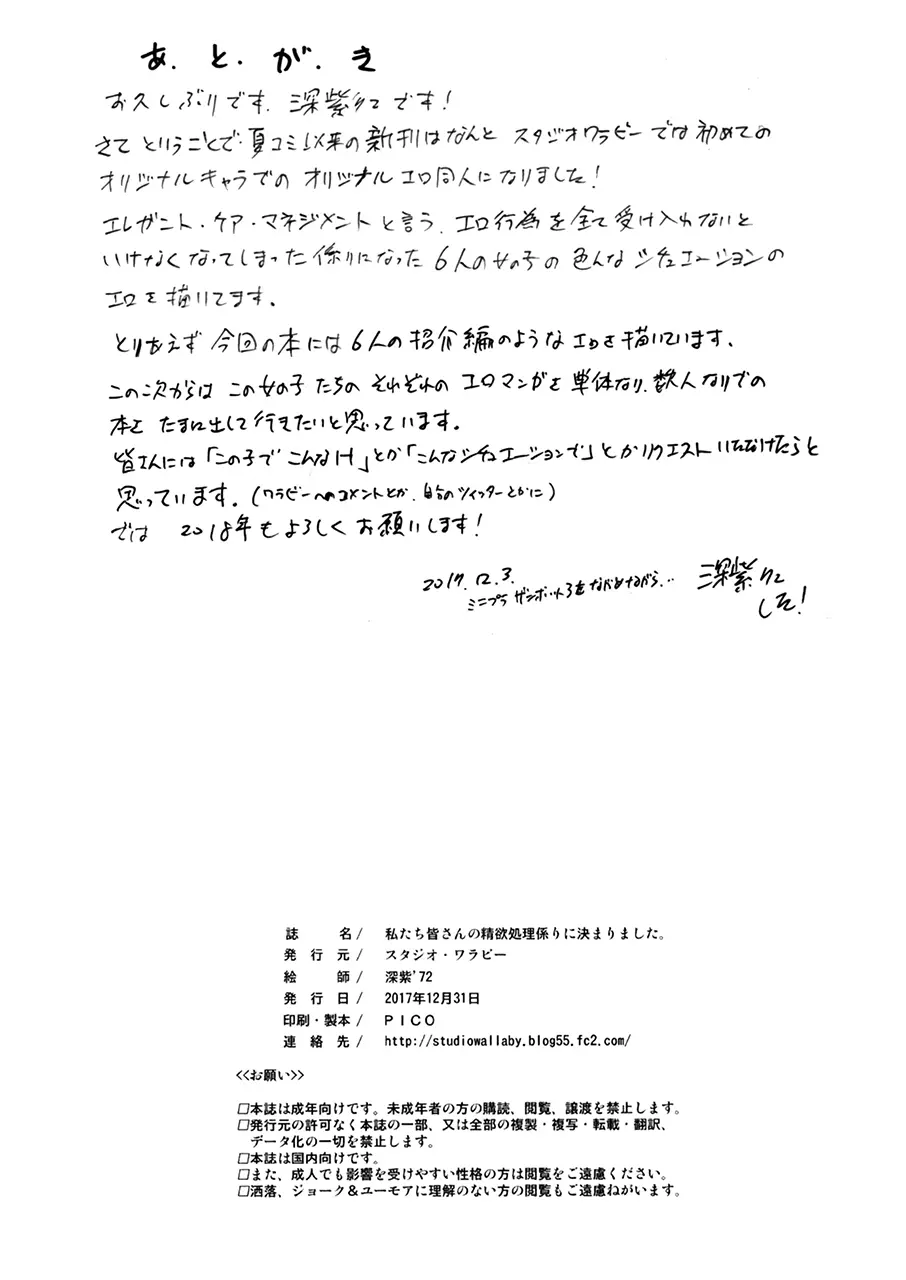 あ.と.が.き
お久しぶりです.深紫'72です!
さて ということで.夏コミ以来の新刊はなんと スタジオワラビーでは初めての
オリジナルキャラでの オリジナルエロ同人になりました!
エレガント・ケア・マネジメントと言う.エロ行為を全て受け入れないと
いけなくなってしまった係りになった 6人の女の子の 色んなシチュエーションの
エロを描いてます.
とりあえず 今回の本には6人の紹介編のようなエロを描いています.
この次からは この女の子たちの それぞれの エロマンガを単体なり.数人なりでの
本を たまに出して行きたいと思っています.
皆さんには「この子で こんなH」とか「こんなシチュエーションで」とかリクエストいただけたらと
思っています.(ワラビーへのコメントとか.自分のツイッターとかに)
では 2018年もよろしくお願いします!
2017.12.3.
ミニプラ ザンボット3をながめながら...
深紫'72
した!
誌 名/ 私たち皆さんの精欲処理係りに決まりました。
発 行 元/ スタジオ・ワラビー
絵 師/ 深紫'72
発 行 日/ 2017年12月31日
印刷・製本/ PICO
連 絡 先/ http://studiowallaby.blog55.fc2.com/
<<お願い>>
□本誌は成年向けです。未成年者の方の購読、閲覧、譲渡を禁止します。
□発行元の許可なく本誌の一部、又は全部の複製・複写・転載・翻訳、
データ化の一切を禁止します。
□本誌は国内向けです。
□また、成人でも影響を受けやすい性格の方は閲覧をご遠慮ください。
□洒落、ジョーク&ユーモアに理解のない方の閲覧もご遠慮ねがいます。